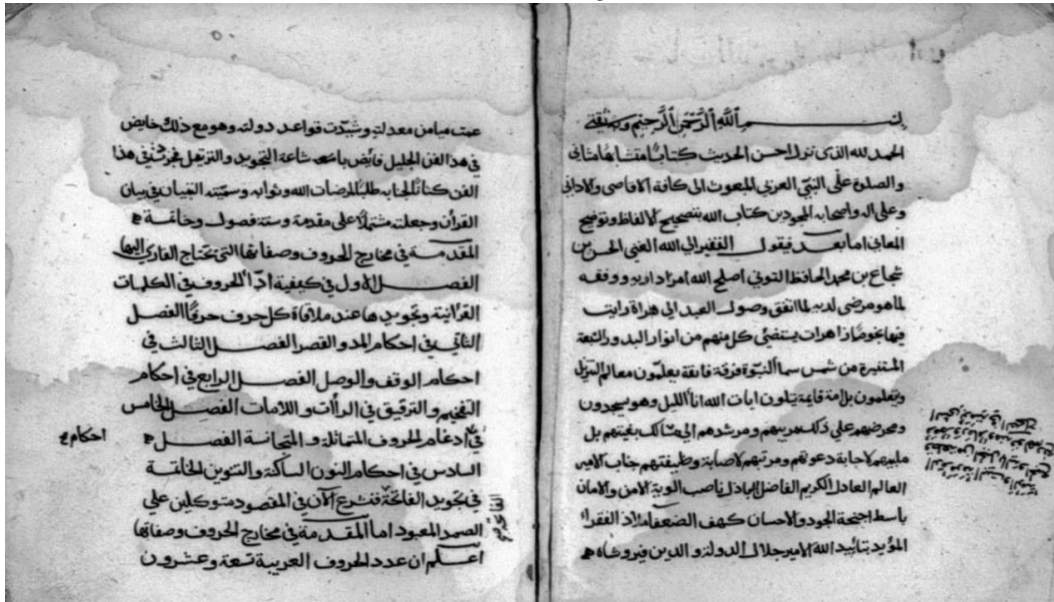 بسم الله الرحمن الرحيم وبه ثقة
الحمد لله الذى نزل احسن الحديث كتابًا متشابهًا مثانى
والصلوة على النبى العربى المبعوث الى كافة الاقاصى والادانى
وعلى اله واصحابه المجودين كتاب الله بتصحيح الالفاظ وتوضيح
المعانى اما بعد فيقول الفقير الى الله الغنى الحسن بن
شجاع بن محمد الحافظ التونى اصلح الله امر داريه ووفقه
لما هو مرضى لديه لما اتفق وصول العبد الى هراة رايت
فيها نجومًا زاهرات يستضئ كل منهم من انوار البدور التبعة
المستنيرة من شمس سماء النبوة فرقة فايقة يعلمون معالم التنزيل
ويعلمون بلامة قايمة يتلون ايات الله اناء الليل وهم يسجدون
ومحرضهم على ذلك مربيهم ومرشدهم الى مسالك بغيتهم بل
ملبيهم لاجابة دعوتهم ومرتبهم لاصابة وظيفتهم جناب الامير
العالم العادل الكريم الفاضل الباذل ناصب الوية الامن والامان
باسط اجنحة الجود والاحسان كهف الضعفا ملاذ الفقراء
المؤيد بتأييد الله الامير جلال الدولة والدين فيروز شاه
عمت ميامن معدلته وشيدت قواعد دولته وهو مع ذلك خايض
فى هذا الفن الجليل فايض باشعة شاعة التجويد والترتيل فحررت فى هذا
الفن كتابًا لجنابه طلبًا لمرضات الله وثوابه وسميته التبيان فى بيان
القرأن وجعلته مشتملا على مقدمة وستة فصول وخاتمة
المقدمة فى مخارج الحروف وصفاتها التى يحتاج القارى اليها
الفصل الاول فى كيفية اداء الحروف فى الكلمات
القرآنية وتجويدها عند ملاقاة كل حرف حرفًا الفصل
الثانى فى احكام المد والقصر الفصل الثالث فى
احكام الوقف والوصل الفصل الرابع فى احكام
التفخيم والترقيق فى الراءات واللامات الفصل الخامس
فى ادغام الحروف المتماثلة والمتجانسة الفصل
احكام
السادس فى احكام النون الساكنة والتنوين الخاتمة
فى تجويد الفاتحة فنشرع الآن فى المقصود متوكلين على
الصمد المعبود اما المقدمة فى مخارج الحروف وصفاتها
اعلم ان عدد الحروف العربية تسعة وعشرون